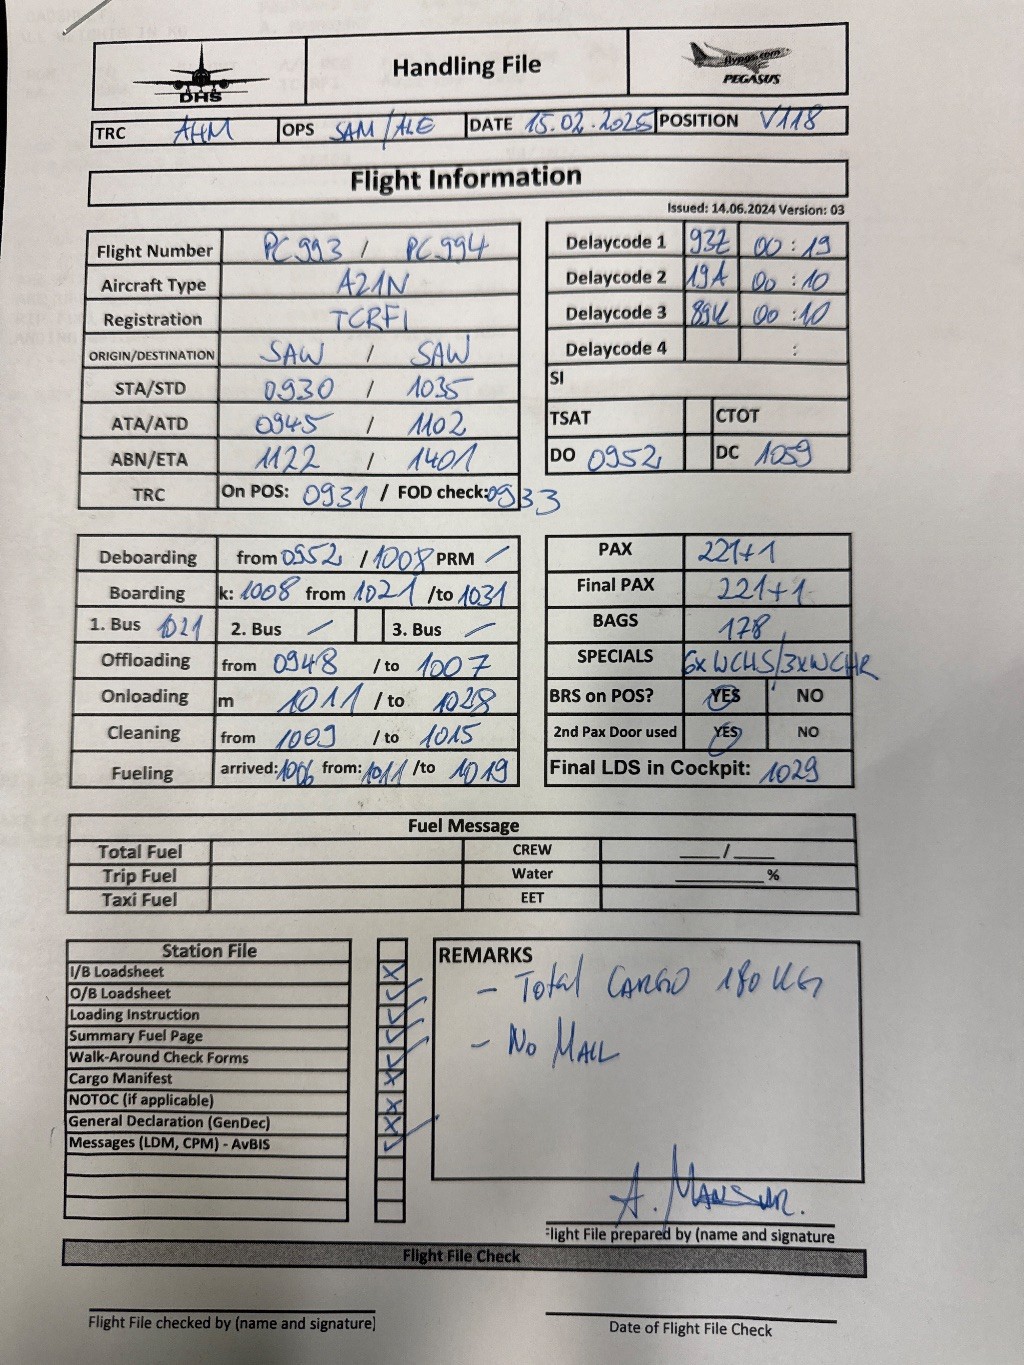 DHS
Handling File
flypgs.com
PEGASUS
TRC AHM OPS SAM/ALE DATE 15.02.2025 POSITION V118
Flight Information
Issued: 14.06.2024 Version: 03
Flight Number PC993 / PC994
Aircraft Type A21N
Registration TCRFI
ORIGIN/DESTINATION SAW / SAW
STA/STD 0930 / 1035
ATA/ATD 0945 / 1102
ABN/ETA 1122 / 1401
TRC On POS: 0931 / FOD check: 0933
Delaycode 1 93Z 00:19
Delaycode 2 19A 00:10
Delaycode 3 89K 00:10
Delaycode 4 :
SI
TSAT CTOT
DO 0952 DC 1059
Deboarding from 0952 / 1008 PRM /
Boarding k: 1008 from 1021 /to 1031
1. Bus 1021 2. Bus / 3. Bus /
Offloading from 0948 / to 1007
Onloading m 1011 / to 1028
Cleaning from 1009 / to 1015
Fueling arrived: 1006 from: 1011 /to 1019
PAX 221+1
Final PAX 221+1
BAGS 178
SPECIALS 6xWCHS/3xWCHR
BRS on POS? YES NO
2nd Pax Door used YES NO
Final LDS in Cockpit: 1029
Fuel Message
Total Fuel CREW ___/___
Trip Fuel Water ______%
Taxi Fuel EET
Station File
I/B Loadsheet X
O/B Loadsheet ✓
Loading Instruction ✓
Summary Fuel Page ✓
Walk-Around Check Forms ✓
Cargo Manifest X
NOTOC (if applicable) X
General Declaration (GenDec) X
Messages (LDM, CPM) - AvBIS ✓
REMARKS
- Total CARGO 180 KG
- No MAIL
A. Mansur.
Flight File prepared by (name and signature
Flight File Check
Flight File checked by (name and signature)
Date of Flight File Check